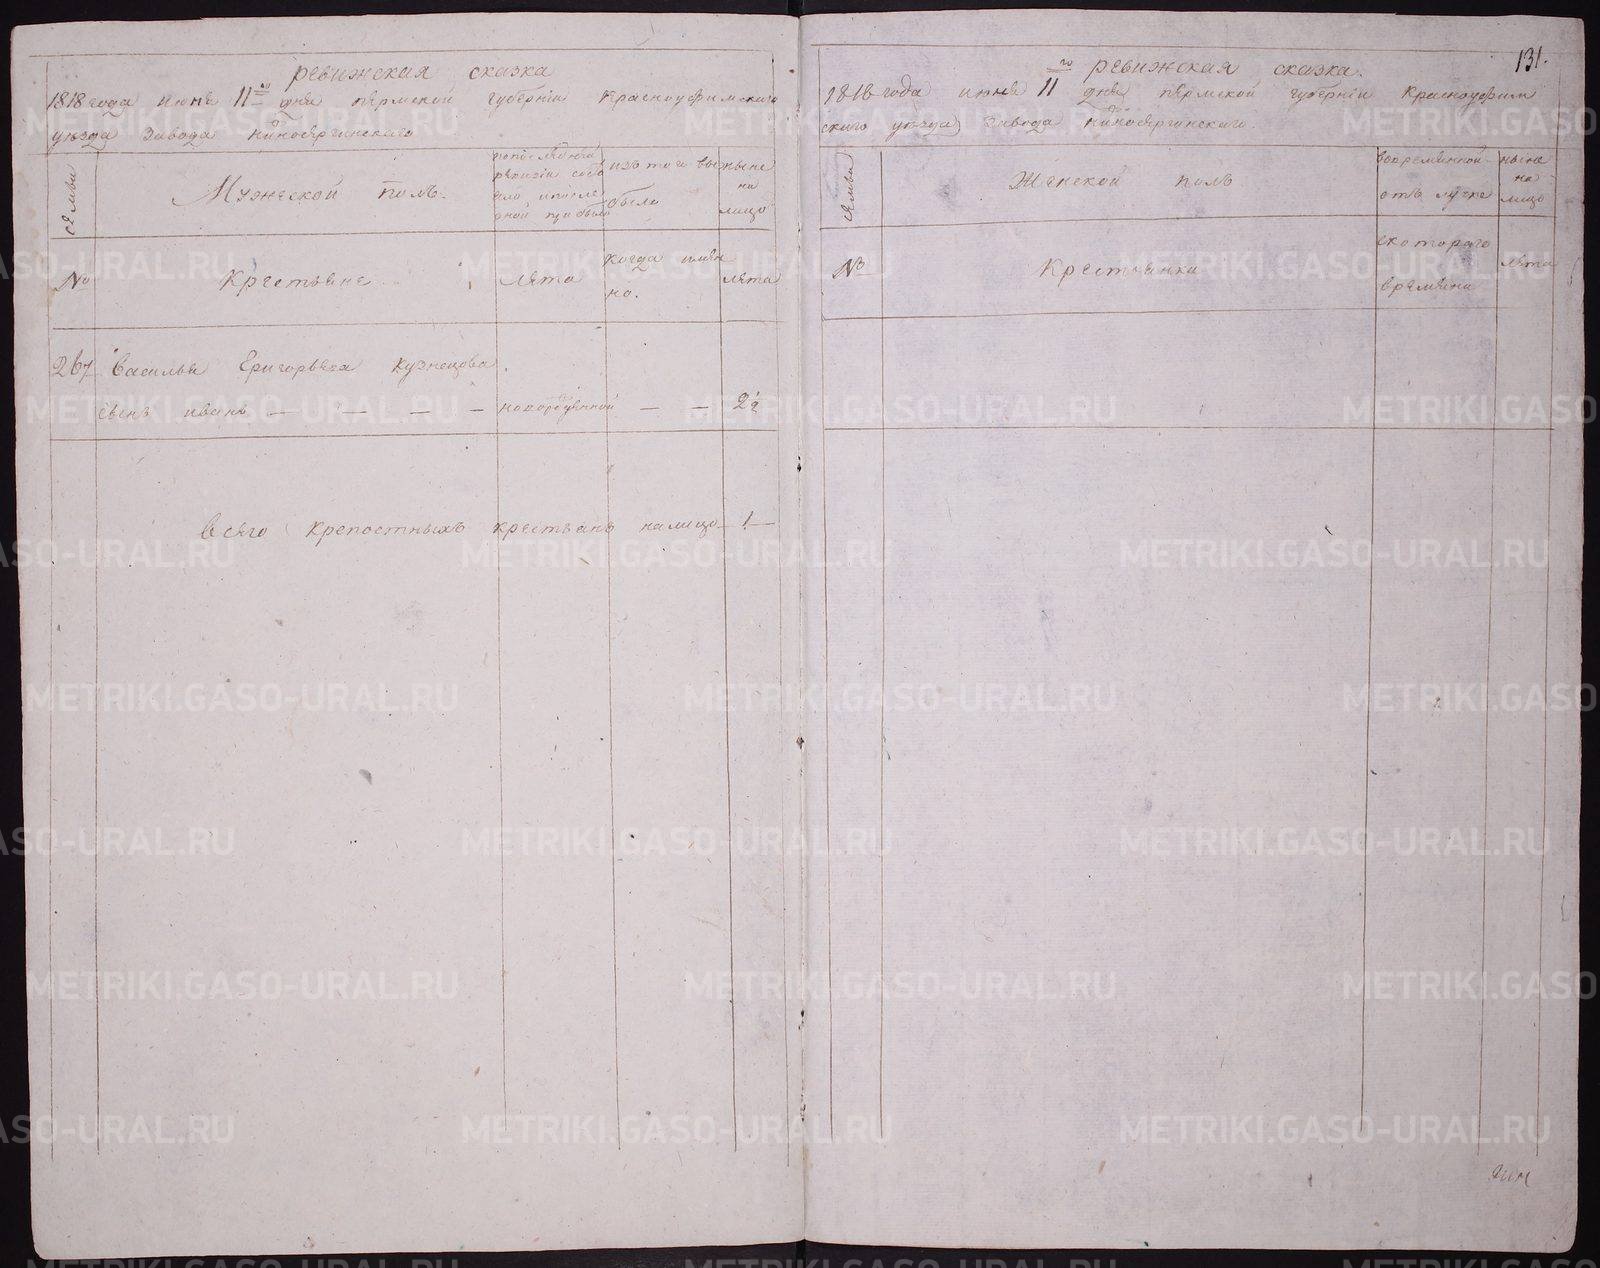 ревижская сказка
1818 года июня 11го дня пермской губерніи красноуфимского
уезда завода нижносергинского
семьи
Мужеской полъ.
по последней
ревизіи состо
яло, и после
оной прибыло
изъ того вы
было
ныне
на
лицо
№
Крестьяне
лета
когда имян
но.
лета
267
василья Григорьева кузнецова
сынъ иванъ — — — —
новорожденной — —
2½
всего крепостныхъ крестьянъ налицо — 1 —
131.
ревижская сказка.
1818 года июня 11го дня пермской губерніи Красноуфим
ского уезда завода нижносергинского.
семьи
Женской полъ
вовременной
отълучке
ныне
на
лицо
№
Крестьянки
скотораго
времяни
лета
METRIKI.GASO-URAL.RU